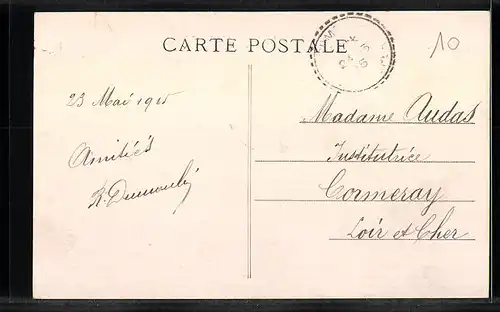 CARTE POSTALE
10
23 Mai 1915
Amitiés
Madame Audas
Institutrice
Cormeray
Loir et Cher